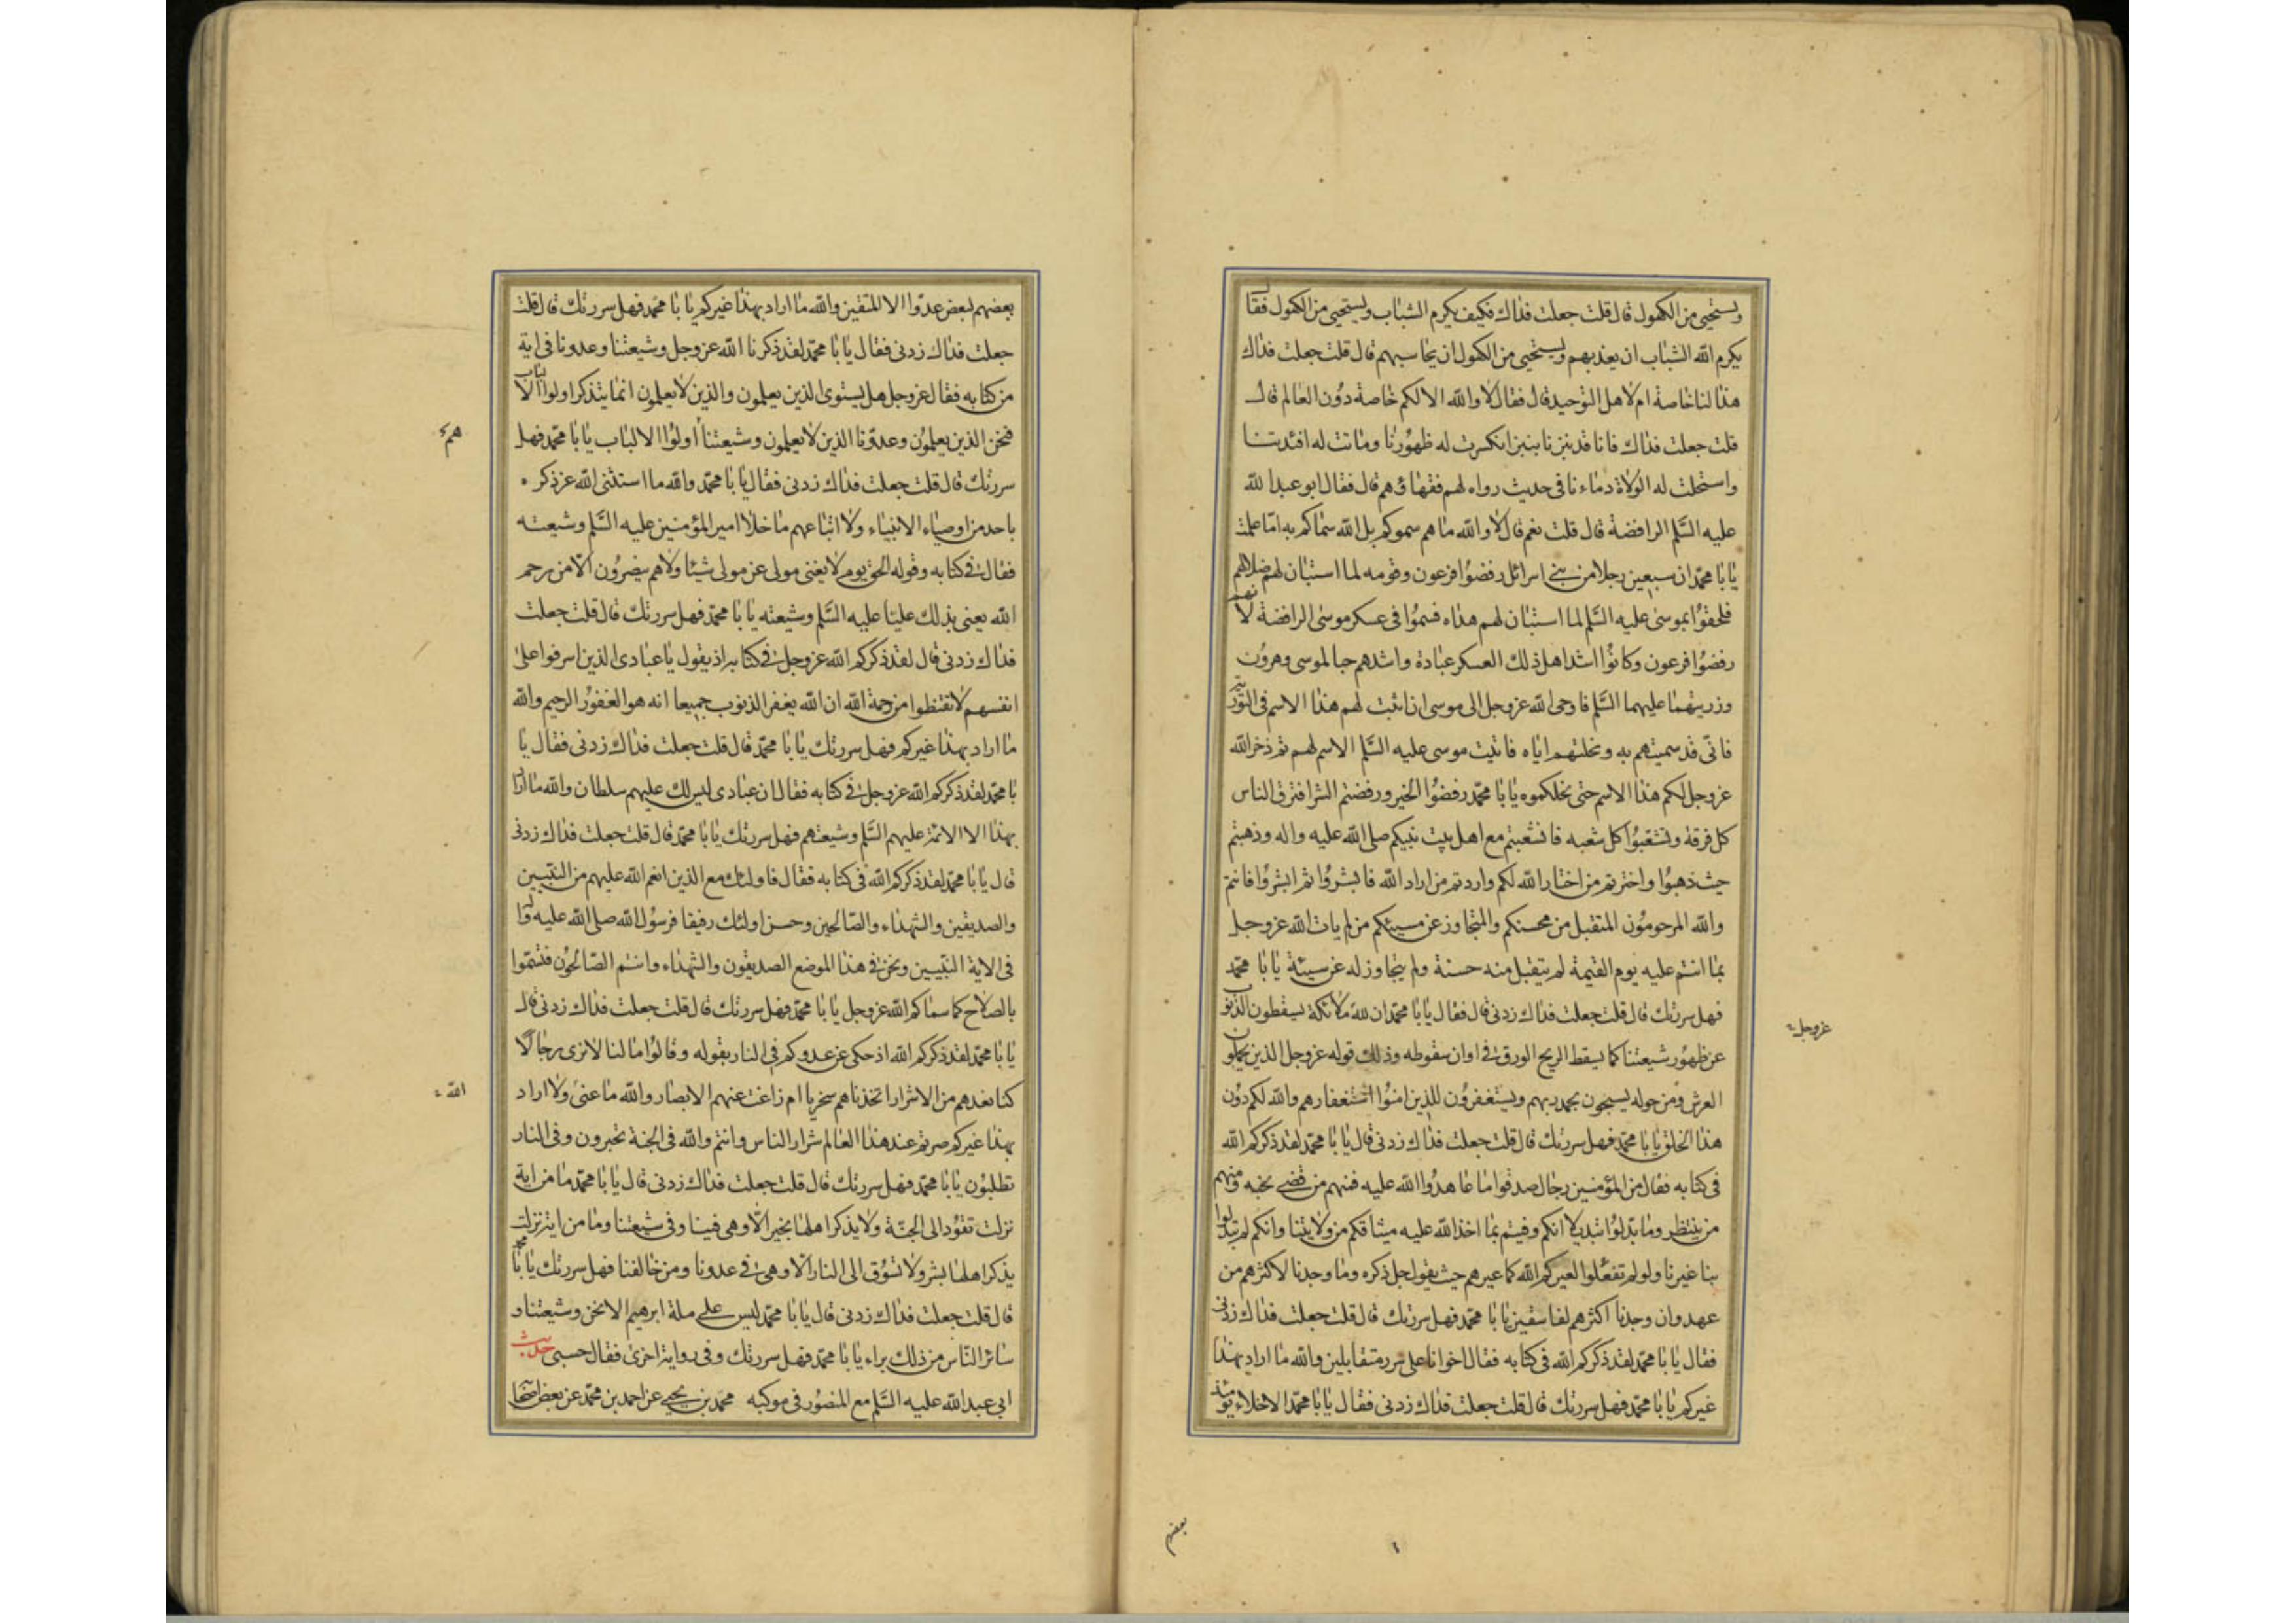 ويستحيى من الكهول قال قلت جعلت فداك فكيف يكرم الشباب ويستحيى من الكهول فقال
يكرم الله الشباب ان يعذبهم ويستحيى من الكهول ان يحاسبهم قال قلت جعلت فداك
هذا لنا خاصة ام لاهل التوحيد قال فقال لا والله الا لكم خاصة دون العالم قال
قلت جعلت فداك فانا قد نبزنا بنبز انكسرت له ظهورنا وماتت له افئدتنا
واستحلت له الولاة دماءنا في حديث رواه لهم فقهاؤهم قال فقال ابو عبد الله
عليه السلم الرافضة قال قلت نعم قال لا والله ما هم سموكم بل الله سماكم به اما علمت
يا با محمد ان سبعين رجلا من بنى اسرائل رفضوا فرعون وقومه لما استبان لهم ضلالهم
فلحقوا بموسى عليه السلم لما استبان لهم هداه فسموا في عسكر موسى الرافضة لانهم
رفضوا فرعون وكانوا اشد اهل ذلك العسكر عبادة واشدهم حبا لموسى وهرون
وذريتهما عليهما السلم فاوحى الله عز وجل الى موسى ان اثبت لهم هذا الاسم في التورية
فانى قد سميتهم به ونحلتهم اياه فاثبت موسى عليه السلم الاسم لهم ثم ذخر الله
عز وجل لكم هذا الاسم حتى نحلكموه يا با محمد رفضوا الخير ورفضتم الشر افترق الناس
كل فرقة وتشعبوا كل شعبه فانشعبتم مع اهل بيت نبيكم صلى الله عليه واله وذهبتم
حيث ذهبوا واخترتم من اختار الله لكم واردتم من اراد الله فابشروا ثم ابشروا فانتم
والله المرحومون المتقبل من محسنكم والمتجاوز عن مسيئكم من لم يات الله عز وجل
بما انتم عليه يوم القيمة لم يتقبل منه حسنة ولم يتجاوز له عن سيئة يا با محمد
فهل سررتك قال قلت جعلت فداك زدنى قال فقال يا با محمد ان لله ملائكة يسقطون الذنوب
عن ظهور شيعتنا كما يسقط الريح الورق في اوان سقوطه وذلك قوله عز وجل الذين يحملون
عز وجل
العرش ومن حوله يسبحون بحمد ربهم ويستغفرون للذين امنوا استغفارهم والله لكم دون
هذا الخلق يا با محمد فهل سررتك قال قلت جعلت فداك زدنى قال يا با محمد لقد ذكركم الله
في كتابه فقال من المؤمنين رجال صدقوا ما عاهدوا الله عليه فمنهم من قضى نحبه ومنهم
من ينتظر وما بدلوا تبديلا انكم وفيتم بما اخذ الله عليه ميثاقكم من ولايتنا وانكم لم تبدلوا
بنا غيرنا ولو لم تفعلوا لعيركم الله كما عيرهم حيث يقول جل ذكره وما وجدنا لاكثرهم من
عهد وان وجدنا اكثرهم لفاسقين يا با محمد فهل سررتك قال قلت جعلت فداك زدنى
فقال يا با محمد لقد ذكركم الله في كتابه فقال اخوانا على سرر متقابلين والله ما اراد بهذا
غيركم يا با محمد فهل سررتك قال قلت جعلت فداك زدنى فقال يا با محمد الاخلاء يومئذ
بعضهم
بعضهم لبعض عدوا الا المتقين والله ما اراد بهذا غيركم يا با محمد فهل سررتك قال قلت
جعلت فداك زدنى فقال يا با محمد لقد ذكرنا الله عز وجل وشيعتنا وعدونا في اية
من كتابه فقال عز وجل هل يستوى الذين يعلمون والذين لا يعلمون انما يتذكر اولوا الالباب
فنحن الذين يعلمون وعدونا الذين لا يعلمون وشيعتنا اولوا الالباب يا با محمد فهل
هم
سررتك قال قلت جعلت فداك زدنى فقال يا با محمد والله ما استثنى الله عز ذكره
باحد من اوصياء الانبياء ولا اتباعهم ما خلا امير المؤمنين عليه السلم وشيعته
فقال في كتابه وقوله الحق يوم لا يغنى مولى عن مولى شيئا ولا هم ينصرون الا من رحم
الله يعنى بذلك عليا عليه السلم وشيعته يا با محمد فهل سررتك قال قلت جعلت
فداك زدنى قال لقد ذكركم الله عز وجل في كتابه اذ يقول يا عبادى الذين اسرفوا على
انفسهم لا تقنطوا من رحمة الله ان الله يغفر الذنوب جميعا انه هو الغفور الرحيم والله
ما اراد بهذا غيركم فهل سررتك يا با محمد قال قلت جعلت فداك زدنى فقال يا
با محمد لقد ذكركم الله عز وجل في كتابه فقال ان عبادى ليس لك عليهم سلطان والله ما اراد
بهذا الا الائمة عليهم السلم وشيعتهم فهل سررتك يا با محمد قال قلت جعلت فداك زدنى
قال يا با محمد لقد ذكركم الله في كتابه فقال فاولئك مع الذين انعم الله عليهم من النبيين
والصديقين والشهداء والصالحين وحسن اولئك رفيقا فرسول الله صلى الله عليه واله
في الاية النبيين ونحن في هذا الموضع الصديقون والشهداء وانتم الصالحون فتسموا
بالصلاح كما سماكم الله عز وجل يا با محمد فهل سررتك قال قلت جعلت فداك زدنى قال
يا با محمد لقد ذكركم الله اذ حكى عن عدوكم في النار بقوله وقالوا ما لنا لا نرى رجالا
كنا نعدهم من الاشرار اتخذناهم سخريا ام زاغت عنهم الابصار والله ما عنى ولا اراد
الله
بهذا غيركم صرتم عند هذا العالم شرار الناس وانتم والله في الجنة تحبرون وفي النار
تطلبون يا با محمد فهل سررتك قال قلت جعلت فداك زدنى قال يا با محمد ما من اية
نزلت تقود الى الجنة ولا يذكر اهلها بخير الا وهى فينا وفي شيعتنا وما من اية نزلت
يذكر اهلها بشر ولا تسوق الى النار الا وهى في عدونا ومن خالفنا فهل سررتك يا با محمد
قال قلت جعلت فداك زدنى قال يا با محمد ليس على ملة ابرهيم الا نحن وشيعتنا و
سائر الناس من ذلك براء يا با محمد فهل سررتك وفي رواية اخرى فقال حسبى حديث
ابى عبد الله عليه السلم مع المنصور في موكبه محمد بن يحيى عن احمد بن محمد عن بعض اصحابه